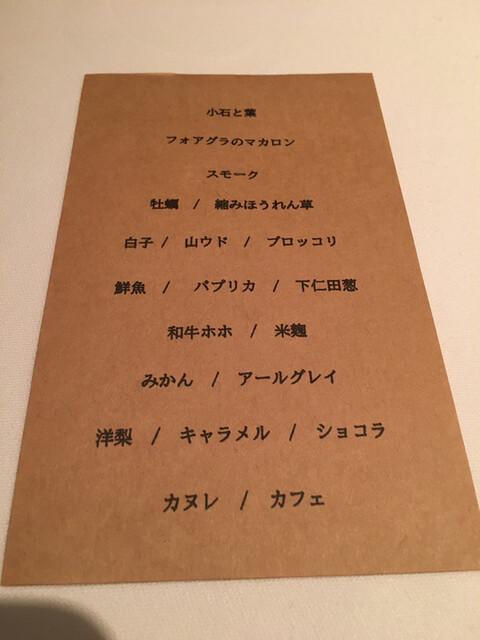 小石と葉
フォアグラのマカロン
スモーク
牡蠣 / 縮みほうれん草
白子 / 山ウド / ブロッコリ
鮮魚 / パプリカ / 下仁田葱
和牛ホホ / 米麹
みかん / アールグレイ
洋梨 / キャラメル / ショコラ
カヌレ / カフェ